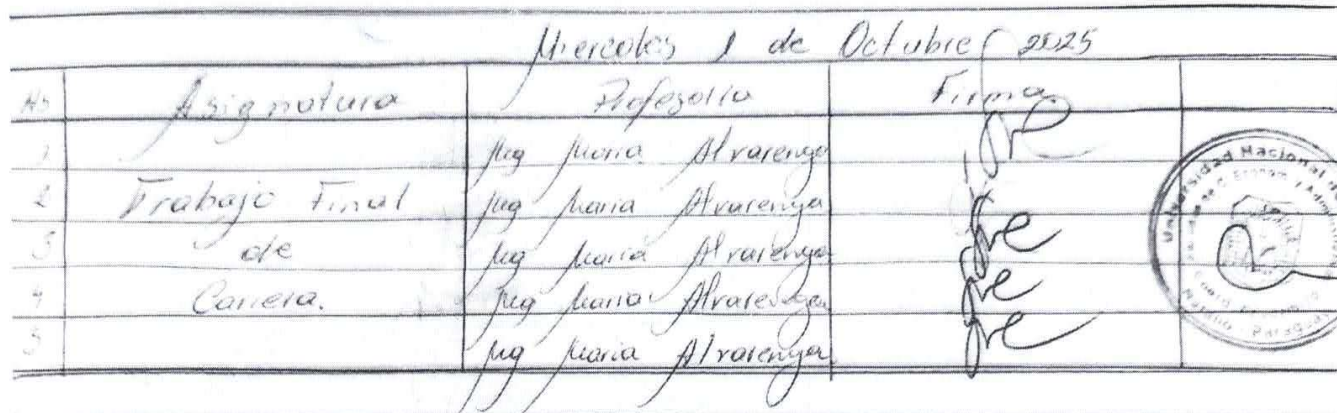 Miercoles 1 de Octubre 2025
Hs Asignatura Profesor/a Firma
1 Mg Maria Alvarenga
2 Trabajo Final Mg Maria Alvarenga
3 de Mg Maria Alvarenga
4 Carrera. Mg Maria Alvarenga
5 Mg Maria Alvarenga
Universidad Nacional de
Paraguay